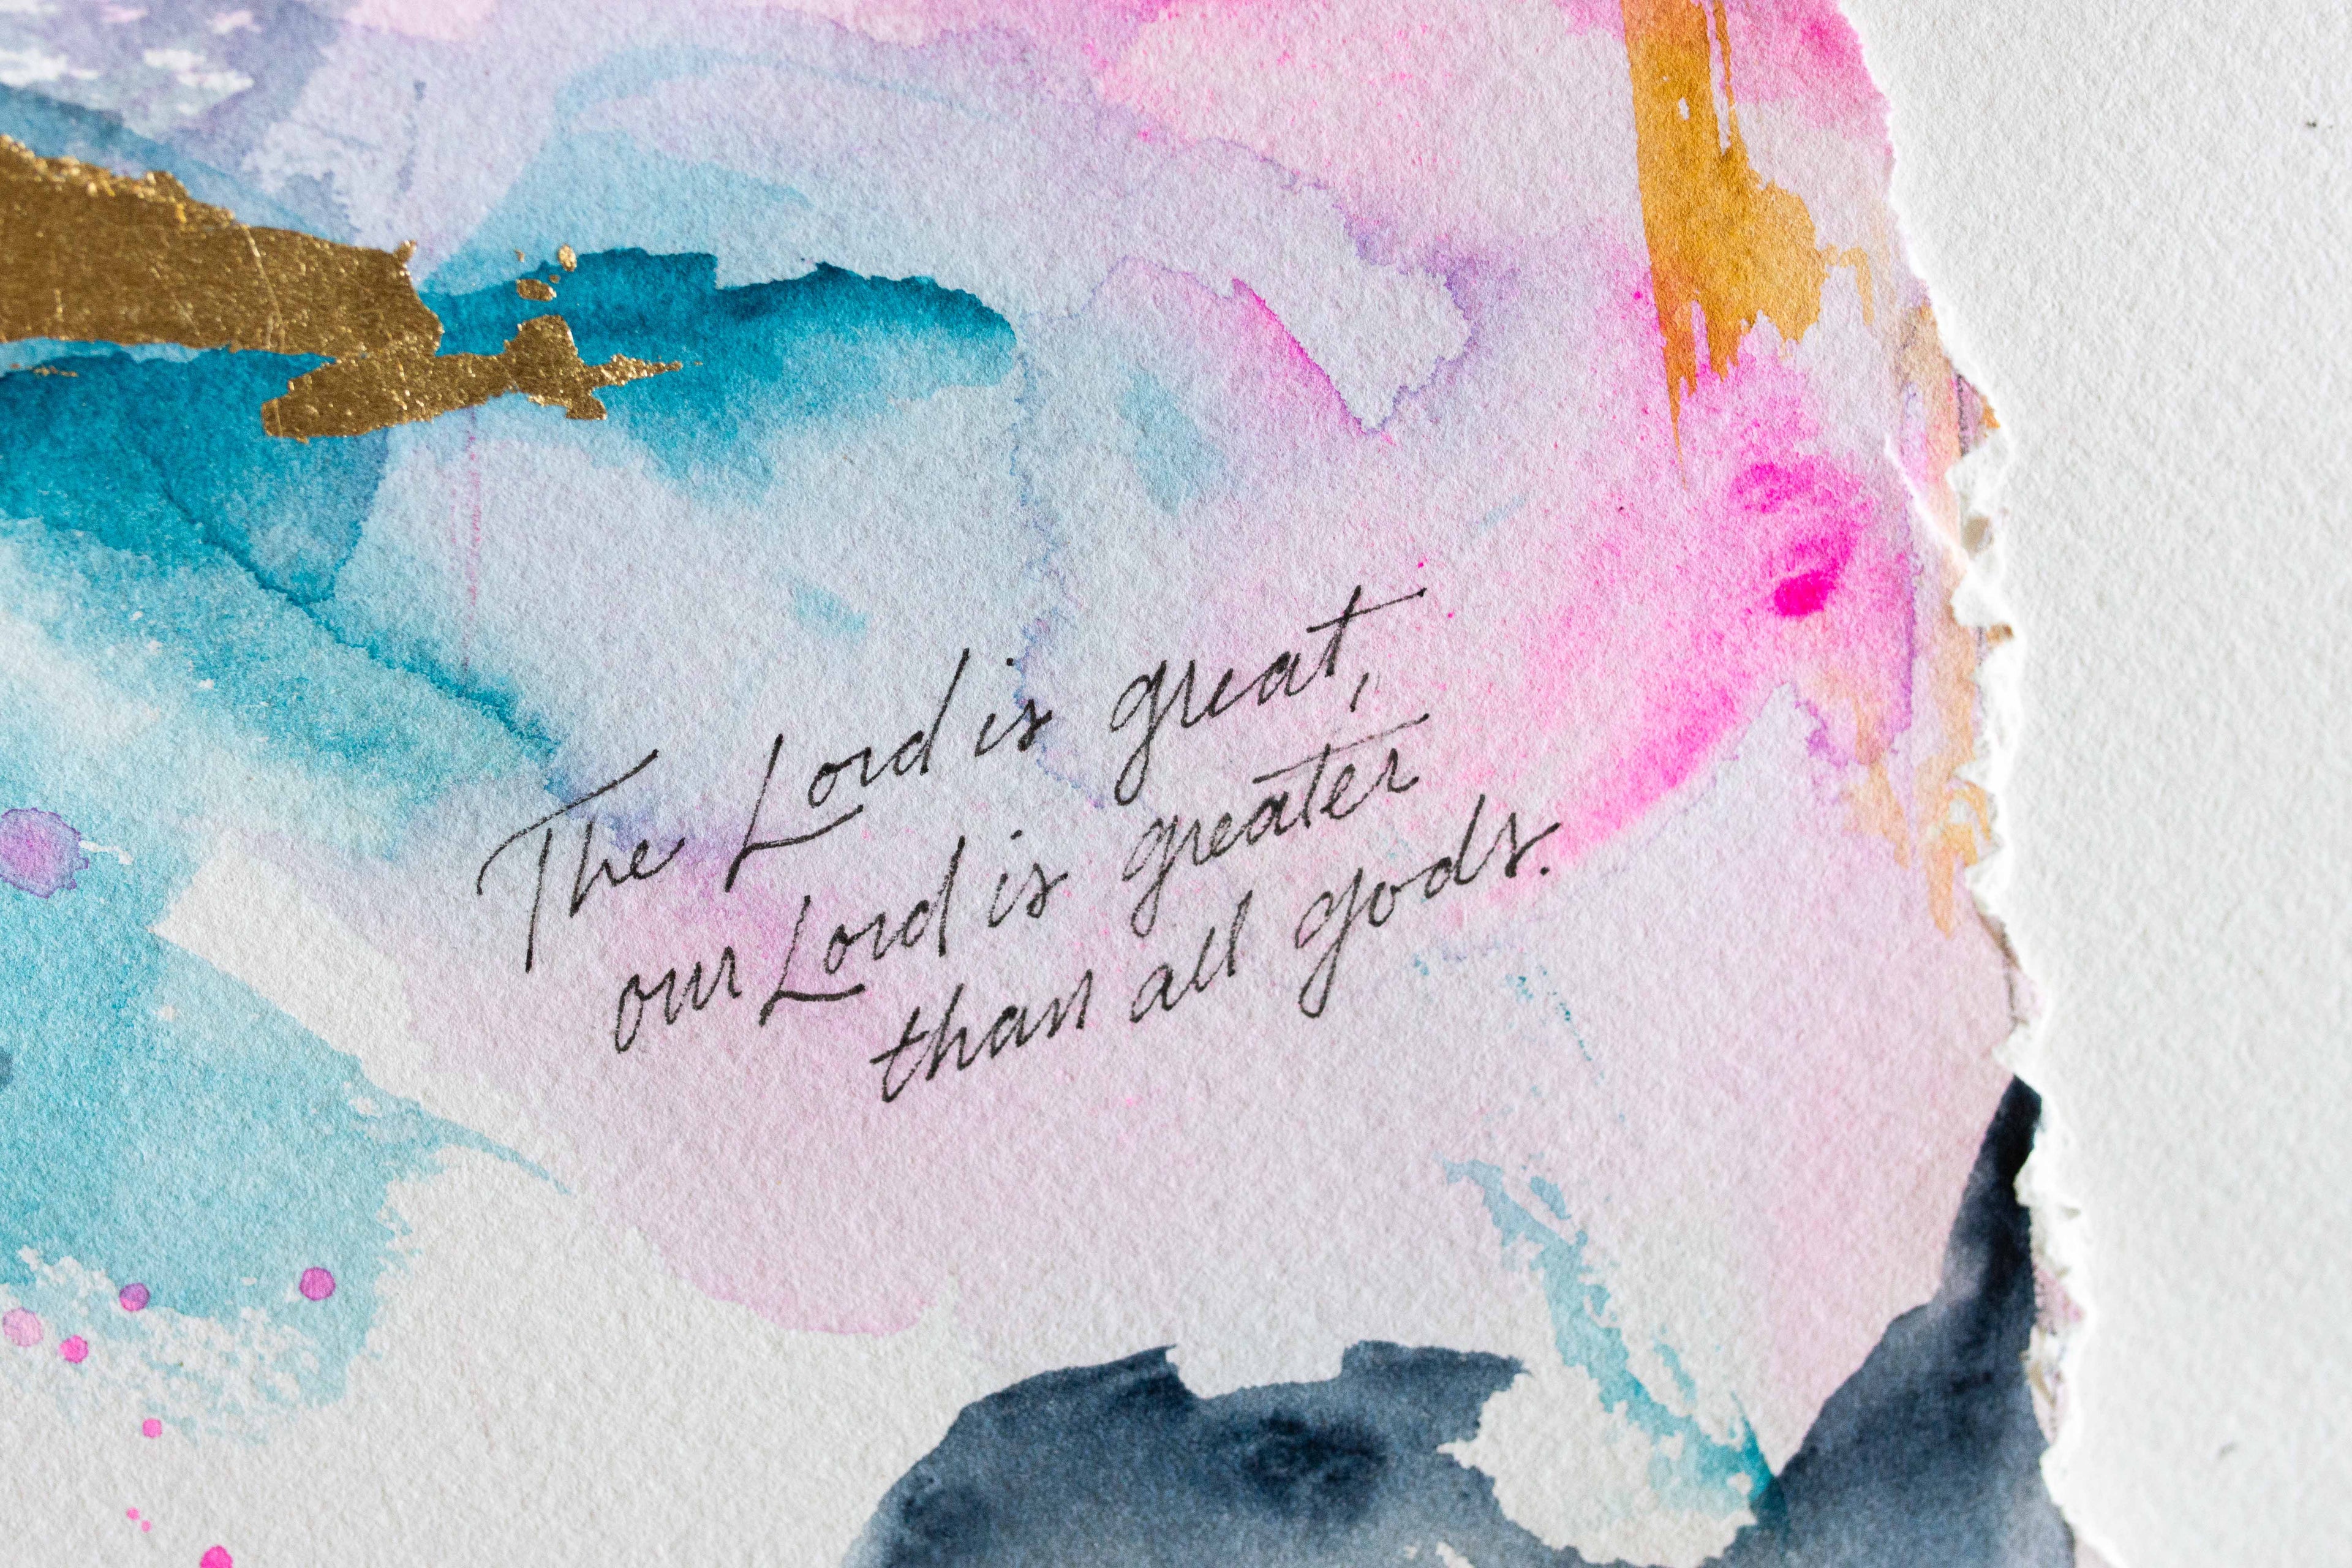 The Lord is great,
our Lord is greater
than all gods.